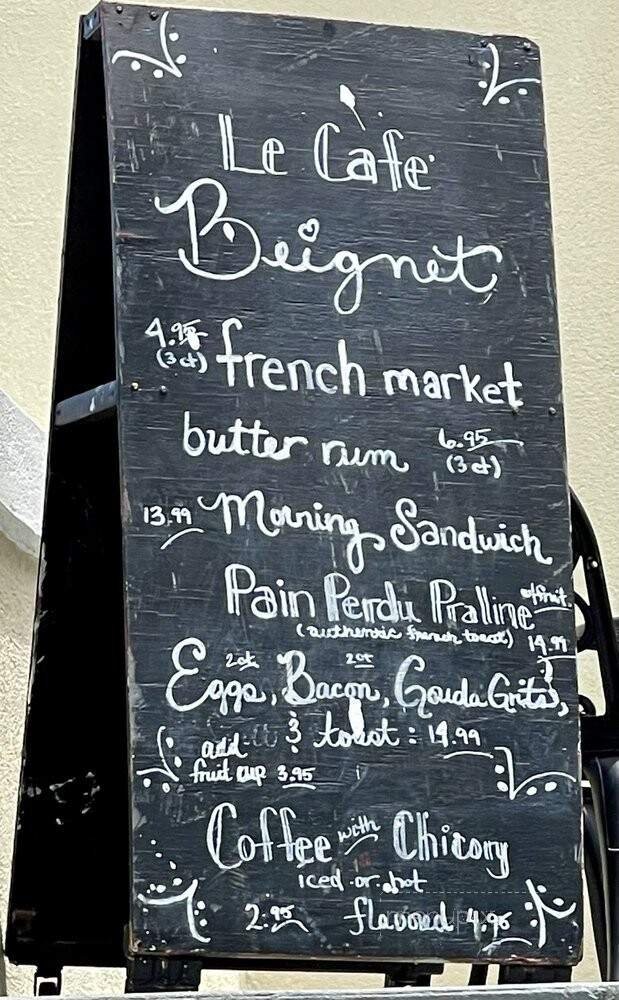 Le Cafe
Beignet
4.95 french market
(3 ct)
butter rum 6.95
(3 ct)
13.99 Morning Sandwich
Pain Perdu Praline
(authentic french toast) 14.99
Eggs, 2ct Bacon, 2ct Gouda Grits,
& toast : 14.99
add
fruit cup 3.95
Coffee with Chicory
iced or hot
2.95 flavored 4.95